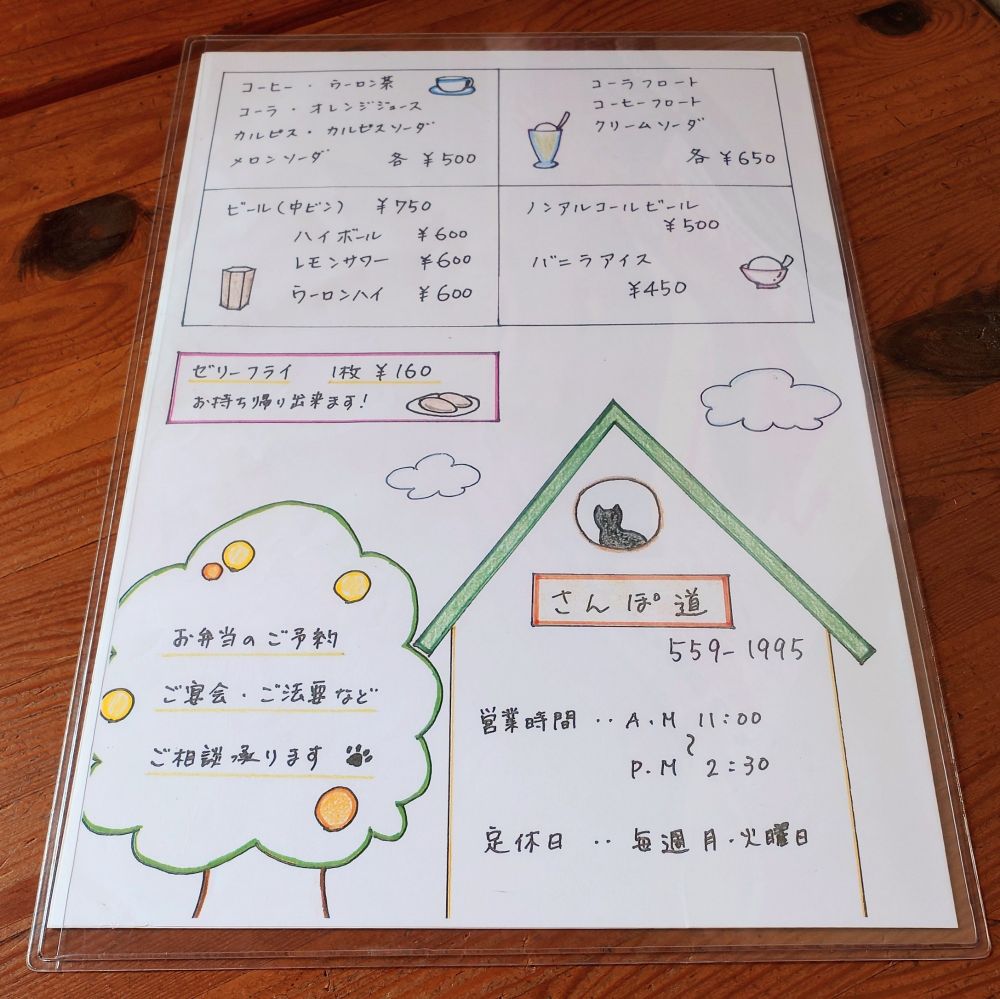 コーヒー・ウーロン茶
コーラ・オレンジジュース
カルピス・カルピスソーダ
メロンソーダ 各 ¥500
コーラフロート
コーヒーフロート
クリームソーダ
各 ¥650
ビール(中ビン) ¥750
ハイボール ¥600
レモンサワー ¥600
ウーロンハイ ¥600
ノンアルコールビール
¥500
バニラアイス
¥450
ゼリーフライ 1枚 ¥160
お持ち帰り出来ます!
お弁当のご予約
ご宴会・ご法要など
ご相談承ります
さんぽ道
559-1995
営業時間 ‥ A.M 11:00
〜
P.M 2:30
定休日 ‥ 毎週月・火曜日